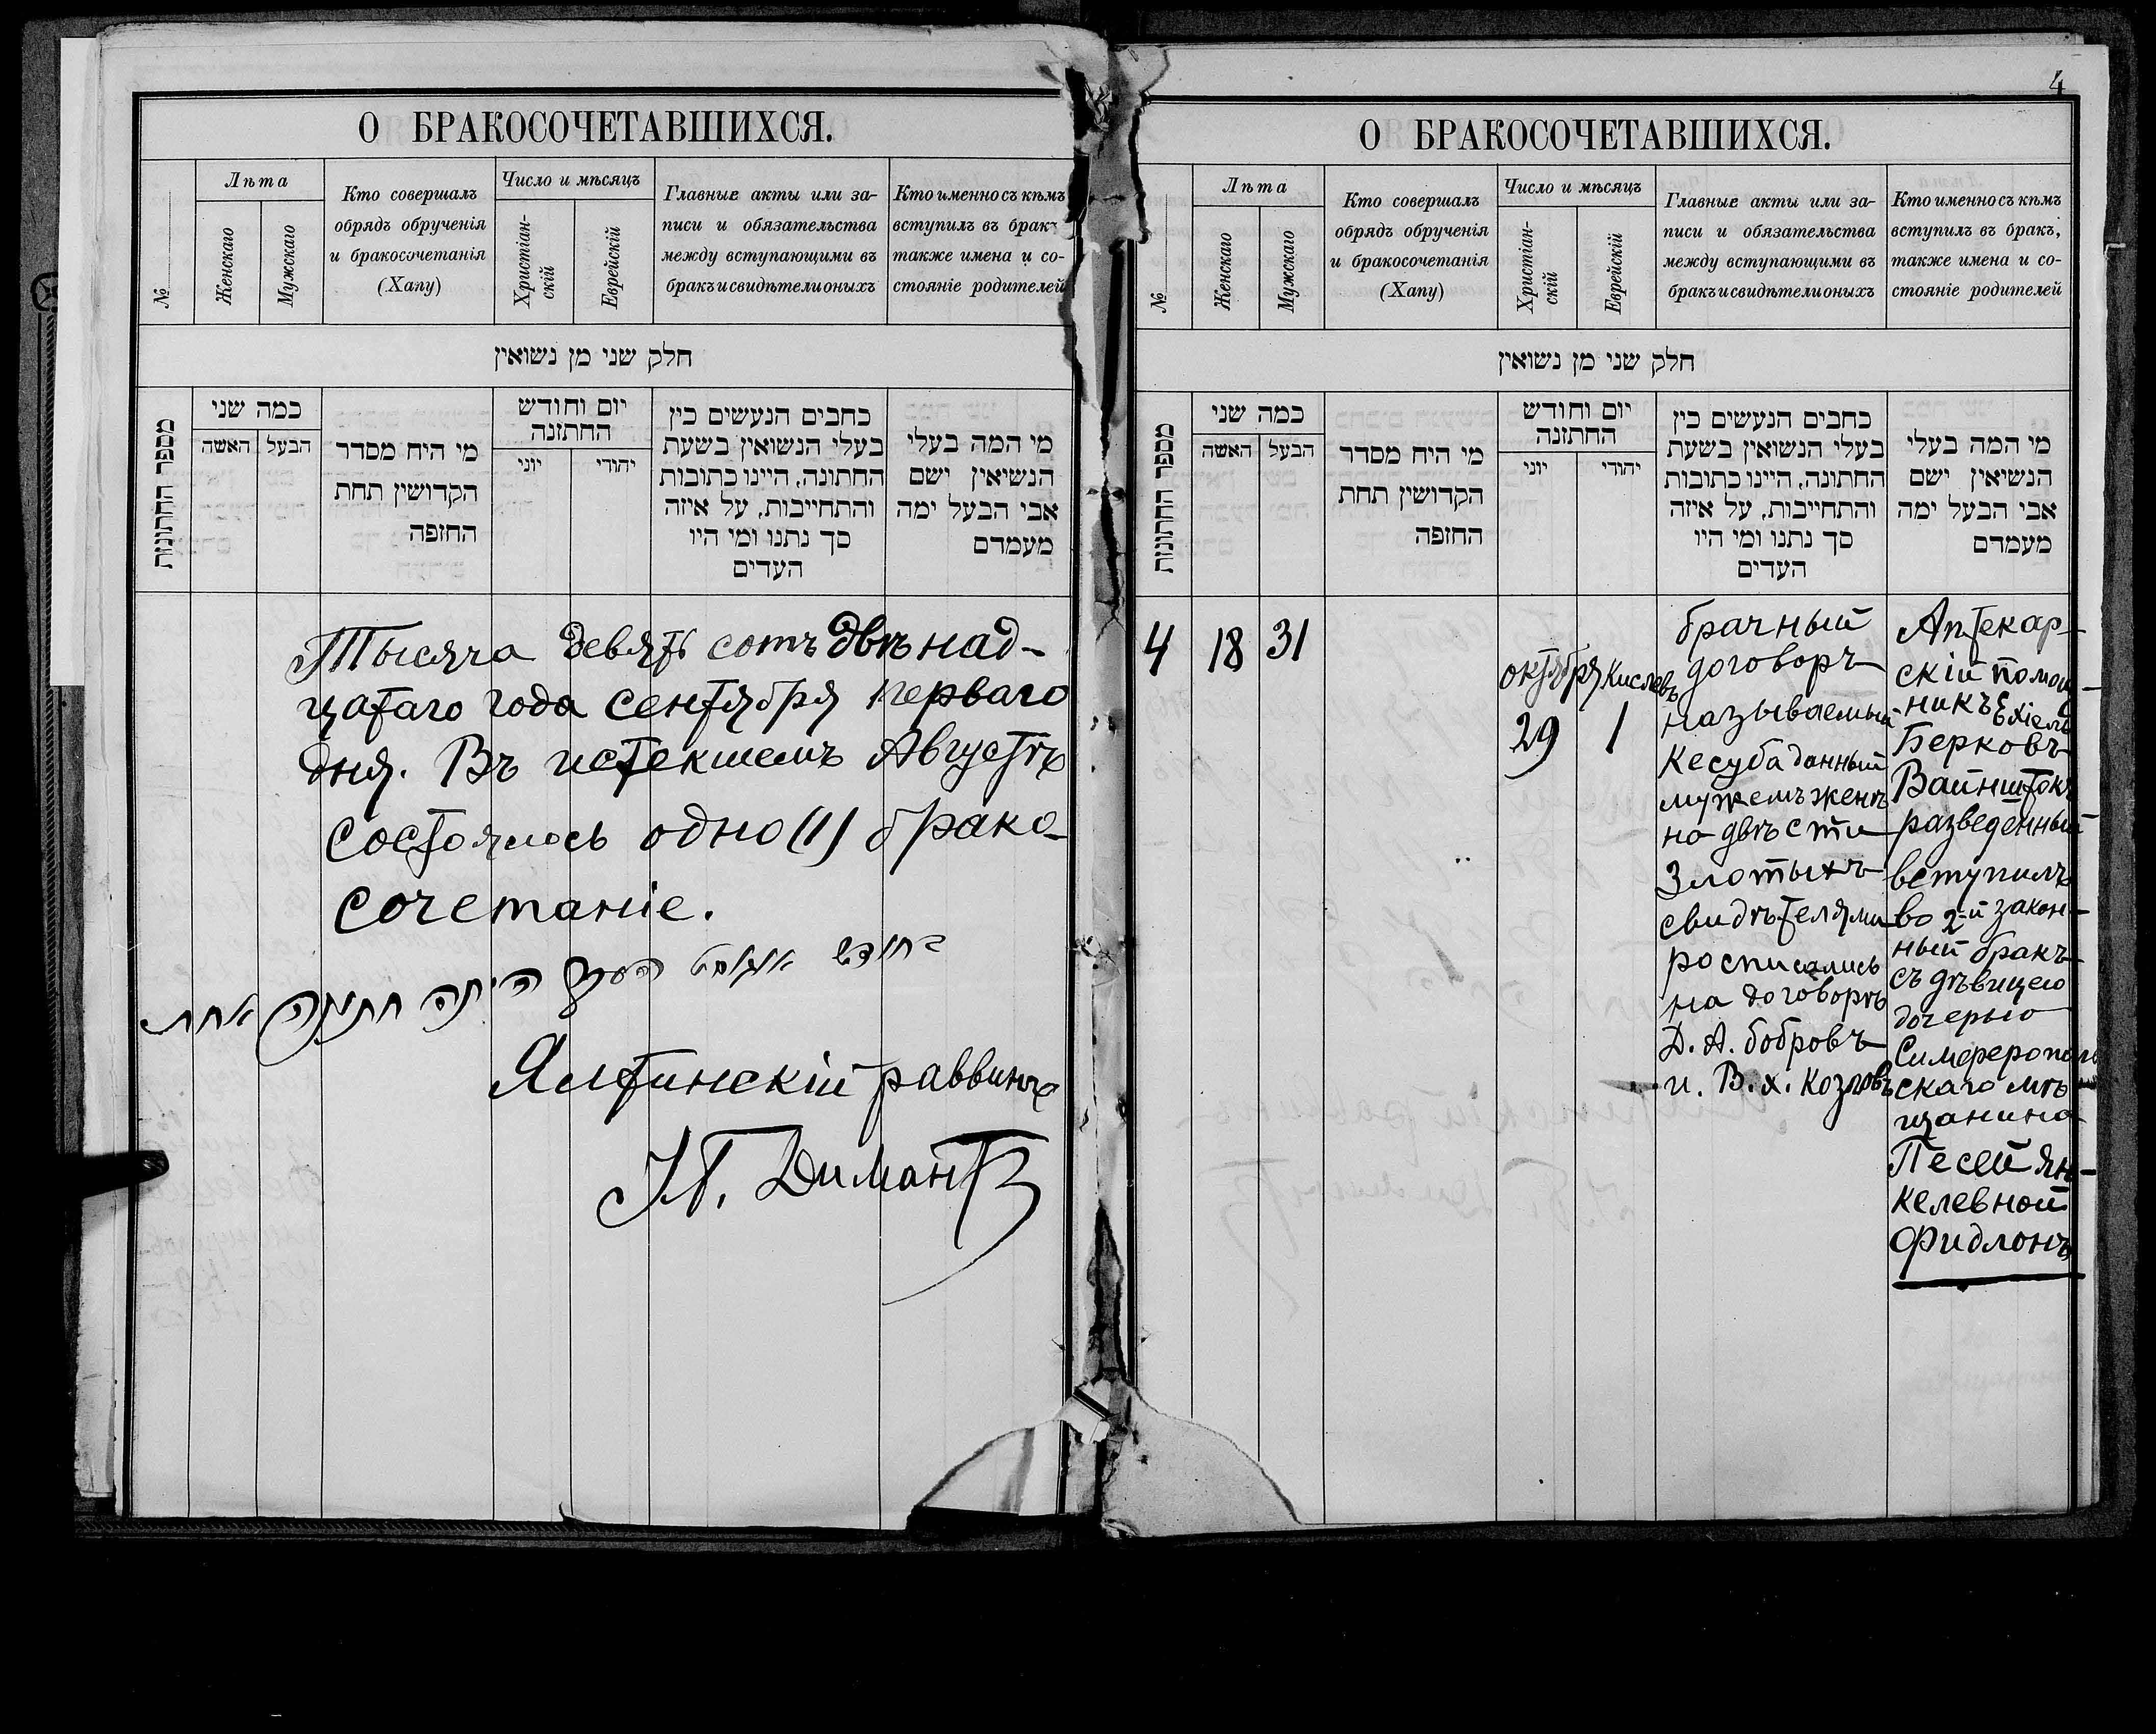 О БРАКОСОЧЕТАВШИХСЯ.
№
Лѣта
Женскаго
Мужскаго
Кто совершалъ
обрядъ обрученія
и бракосочетанія
(Хапу)
Число и мѣсяцъ
Христіан-
скій
Еврейскій
Главные акты или за-
писи и обязательства
между вступающими въ
бракъ и свидѣтели оныхъ
Кто именно съ кѣмъ
вступилъ въ бракъ
также имена и со-
стояніе родителей
חלק שני מן נשואין
מספר החתונות
כמה שני
האשה
הבעל
מי היח מסדר
הקדושין תחת
החזפה
יום וחודש
החתזנה
יוני
יהודי
כחבים הנעשים כין
בעלי הנשואין בשעת
החתונה, היינו כתובות
והתחייבות, על איזה
סך נתנו ומי היו
העדים
מי המה בעלי
הנשיאין ישם
אבי הבעל ימה
מעמדם
Тысяча девять сотъ двѣнад-
цатаго года сентября перваго
дня. Въ истекшемъ Августѣ
состоялось одно (1) брако-
сочетаніе.
בחודש אויגוסט העבר היתה חתונה אחת
Ялтинскій раввинъ
Димантъ
4
О БРАКОСОЧЕТАВШИХСЯ.
№
Лѣта
Женскаго
Мужскаго
Кто совершалъ
обрядъ обрученія
и бракосочетанія
(Хапу)
Число и мѣсяцъ
Христіан-
скій
Еврейскій
Главные акты или за-
писи и обязательства
между вступающими въ
бракъ и свидѣтели оныхъ
Кто именно съ кѣмъ
вступилъ въ бракъ,
также имена и со-
стояніе родителей
חלק שני מן נשואין
מספר החתונות
כמה שני
האשה
הבעל
מי היח מסדר
הקדושין תחת
החזפה
יום וחודש
החתזנה
יוני
יהודי
כחבים הנעשים כין
בעלי הנשואין בשעת
החתונה, היינו כתובות
והתחייבות, על איזה
סך נתנו ומי היו
העדים
מי המה בעלי
הנשיאין ישם
אבי הבעל ימה
מעמדם
4
18
31
октября
29
Кислевъ
1
брачный
договоръ
называемый
Кесуба данный
мужемъ женѣ
на двѣсти
Злотыхъ
свидѣтелями
росписались
на договорѣ
Д. А. бобровъ
и. В. х. Козловъ
Аптекар-
скій помощ-
никъ Ехіель
Берковъ
Вайнштокъ
разведенный
вступилъ
во 2-й закон-
ный бракъ
съ дѣвицею
дочерью
Симферополь-
скаго мѣ-
щанина
Песей Ян-
келевной
Фидлонъ